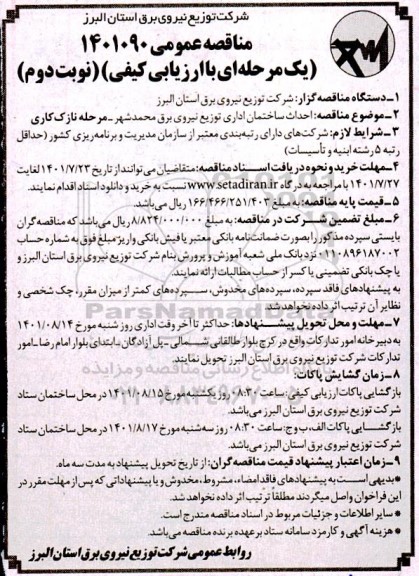 شرکت توزیع نیروی برق استان البرز
مناقصه عمومی ۱۴۰۱۰۹۰
(یک مرحله‌ای با ارزیابی کیفی) (نوبت دوم)
۱ـ دستگاه مناقصه گزار: شرکت توزیع نیروی برق استان البرز
۲ـ موضوع مناقصه: احداث ساختمان اداری توزیع نیروی برق محمدشهر ـ مرحله نازک کاری
۳ـ شرایط لازم: شرکت‌های دارای رتبه‌بندی معتبر از سازمان مدیریت و برنامه‌ریزی کشور (حداقل
رتبه ۵ رشته ابنیه و تأسیسات)
۴ـ مهلت خرید و نحوه دریافت اسناد مناقصه: متقاضیان می‌توانند از تاریخ ۱۴۰۱/۷/۲۳ لغایت
۱۴۰۱/۷/۲۷ با مراجعه به درگاه www.setadiran.ir نسبت به خرید و دانلود اسناد اقدام نمایند.
۵ـ قیمت پایه مناقصه: به مبلغ ۱۶۶/۴۶۶/۲۵۱/۴۰۳ ریال می‌باشد.
۶ـ مبلغ تضمین شرکت در مناقصه: به مبلغ ۸/۸۲۴/۰۰۰/۰۰۰ ریال می‌باشد که مناقصه گران
بایستی سپرده مذکور را بصورت ضمانت‌نامه بانکی معتبر یا فیش بانکی واریز مبلغ فوق به شماره حساب
۰۱۱۰۸۹۶۱۸۷۰۰۲ نزد بانک ملی شعبه آموزش و پرورش بنام شرکت توزیع نیروی برق استان البرز و
یا چک بانکی تضمینی یا کسر از حساب مطالبات ارائه نمایند.
به پیشنهادهای فاقد سپرده، سپرده‌های مخدوش، سپرده‌های کمتر از میزان مقرر، چک شخصی و
نظایر آن ترتیب اثر داده نخواهد شد.
۷ـ مهلت و محل تحویل پیشنهادها: حداکثر تا آخر وقت اداری روز شنبه مورخ ۱۴۰۱/۰۸/۱۴
به دبیرخانه امور تدارکات واقع در کرج بلوار طالقانی شمالی ـ پل آزادگان ـ ابتدای بلوار امام رضا ـ امور
تدارکات شرکت توزیع نیروی برق استان البرز تحویل نمایند.
۸ـ زمان گشایش پاکات:
بازگشایی پاکات ارزیابی کیفی: ساعت ۸:۳۰ روز یکشنبه مورخ ۱۴۰۱/۰۸/۱۵ در محل ساختمان ستاد
شرکت توزیع نیروی برق استان البرز می‌باشد.
بازگشایی پاکات الف، ب و ج: ساعت ۰۸:۳۰ روز سه شنبه مورخ ۱۴۰۱/۸/۱۷ در محل ساختمان ستاد
شرکت توزیع نیروی برق استان البرز می‌باشد.
۹ـ زمان اعتبار پیشنهاد قیمت مناقصه گران: از تاریخ تحویل پیشنهاد به مدت سه ماه.
* بدیهی است به پیشنهادهای فاقد امضاء، مشروط، مخدوش و یا پیشنهاداتی که پس از مهلت مقرر در
این فراخوان واصل میگردند مطلقاً ترتیب اثر داده نخواهد شد.
* سایر اطلاعات و جزئیات مربوط در اسناد مناقصه مندرج است.
* هزینه آگهی و کارمزد سامانه ستاد بر عهده برنده مناقصه می‌باشد.
روابط عمومی شرکت توزیع نیروی برق استان البرز
ParsNamadData